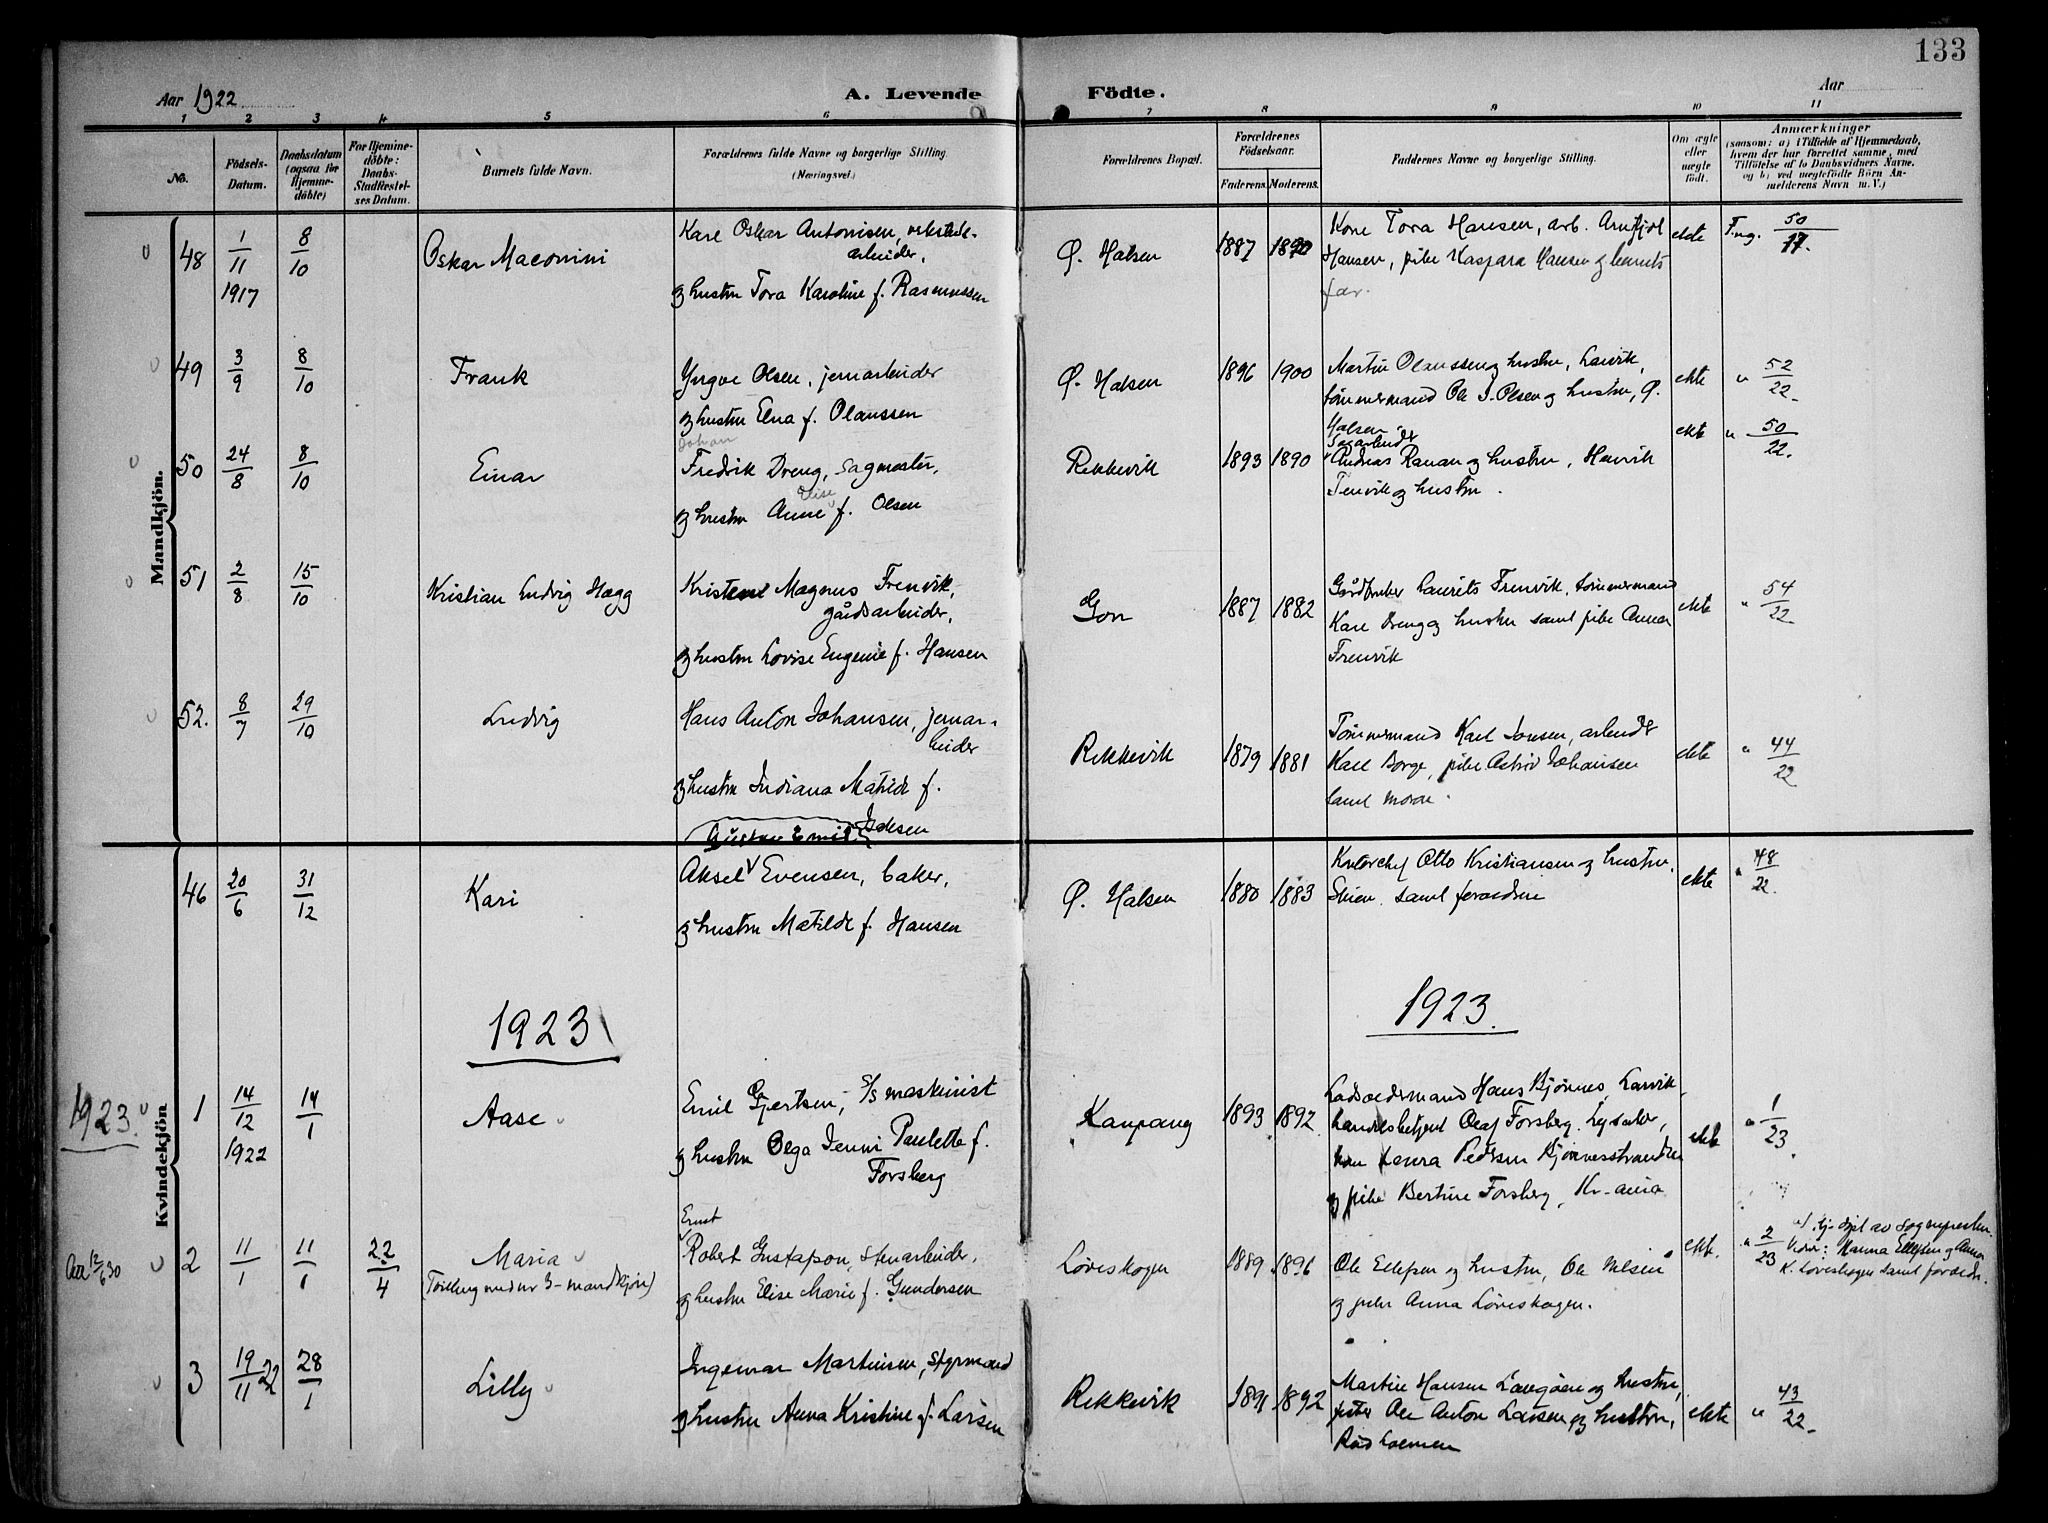 133
Aar 1922
A. Levende
Födte.
Aar
1 2 3 4 5 6 7 8 9 10 11
No.
Födsels-Datum.
Daabsdatum (ogsaa for Hjemme-döbte)
For Hjemme-döbte: Daabs-Stadfæstel-ses Datum.
Barnets fulde Navn.
Forældrenes fulde Navne og borgerlige Stilling. (Næringsvei.)
Forældrenes Bopæl.
Forældrenes Födselsaar.
Faderens. Moderens.
Faddernes Navne og borgerlige Stilling.
Om ægte eller uægte födt.
Anmærkninger
(saasom: a) i Tilfælde af Hjemmedaab, hvem der har forrettet samme, med Tilföielse af to Daabsvidners Navne, og b) ved uægtefödte Börn An-melderens Navn m. V.)
Mandkjön.
48 1/11 1917 8/10 Oskar
Karl Oskar Antonisen, verksteds-
arbeider,
og hustru Tora Karoline f. Rasmussen
Ø. Halsen 1887 1890
Kone Tora Hansen, arb. Arnfjot
Hansen, pike Kaspara Hansen og barnets
far.
ekte F.ng. 50/17.
49 3/9 8/10 Frank
Yngve Olsen, jernarbeider
og hustru Elna f. Olaussen
Ø. Halsen 1896 1900
Martin Olaussen og hustru, Larvik,
tømmermand Ole J. Olsen og hustru, Ø.
Halsen
ekte " 52/22.
50 24/8 8/10 Einar
Johan
Fredrik Dreng, sagmester,
Elise
og hustru Anne f. Olsen
Rekkevik 1893 1890
Sagarbeider
Andreas Ranan og hustru, Henrik
Tenvik og hustru.
ekte " 50/22.
51 2/8 15/10 Kristian Ludvig Hægg
Kristen Magnus Frenvik,
gårdsarbeider,
og hustru Lovise Eugenie f. Hansen
Gon 1887 1882
Gårdbruker Laurits Frenvik, tømmermand
Karl Dreng og hustru samt pike Anna
Frenvik
ekte " 54/22.
52. 8/7 29/10 Ludvig
Hans Anton Johansen, jernar-
beider
og hustru Indiana Matilde f.
Rekkevik 1879 1881
Tømmermand Karl Jonsen, arbeider
Karl Borge, pike Astrid Johansen
samt moren.
ekte " 44/22
Kvindekjön
46 20/6 31/12 Kari
Gustav Emil
Aksel Evensen, baker,
og hustru Matilde f. Hansen
Ø. Halsen 1880 1883
Otto Kristiansen og hustru,
Skien. samt forældrene
ekte " 48/22.
1923
1923.
1923.
1 14/12 1922 14/1 Aase
Emil Gjertsen, S/S maskinist
og hustru Olga Jenni Paulette f.
Forsberg
Kaupang 1893 1892
Ladsoldermand Hans Bjønnes, Larvik,
handelsbetjent Olaf Forsberg,
Laura Pedersen Bjønnesstranden
og pike Bertine Forsberg, Kr-ania
ekte " 1/23.
2 11/1 11/1 22/4 Maria
(Tvilling med nr 3 - mandkjøn)
Ernst
Robert Gustafson, stenarbeider,
og hustru Elise Marie f. Gundersen
Løveskogen 1889 1896
Ole Ellefsen og hustru, Ole Nilsen
og pike Anna Løveskogen.
ekte. " 2/23
a/ Hj. døpt av sognepresten.
Vidner: Hanna Ellefsen og Anna
K. Løveskogen samt forældr.
3 19/11 22 28/1 Lilly
Ingemar Martinsen, styrmand
og hustru Anna Kristine f. Larsen
Rekkevik 1891 1892
Martin Hansen Langøen og hustru,
Ole Anton Larsen og hustru,
ekte " 43/22.